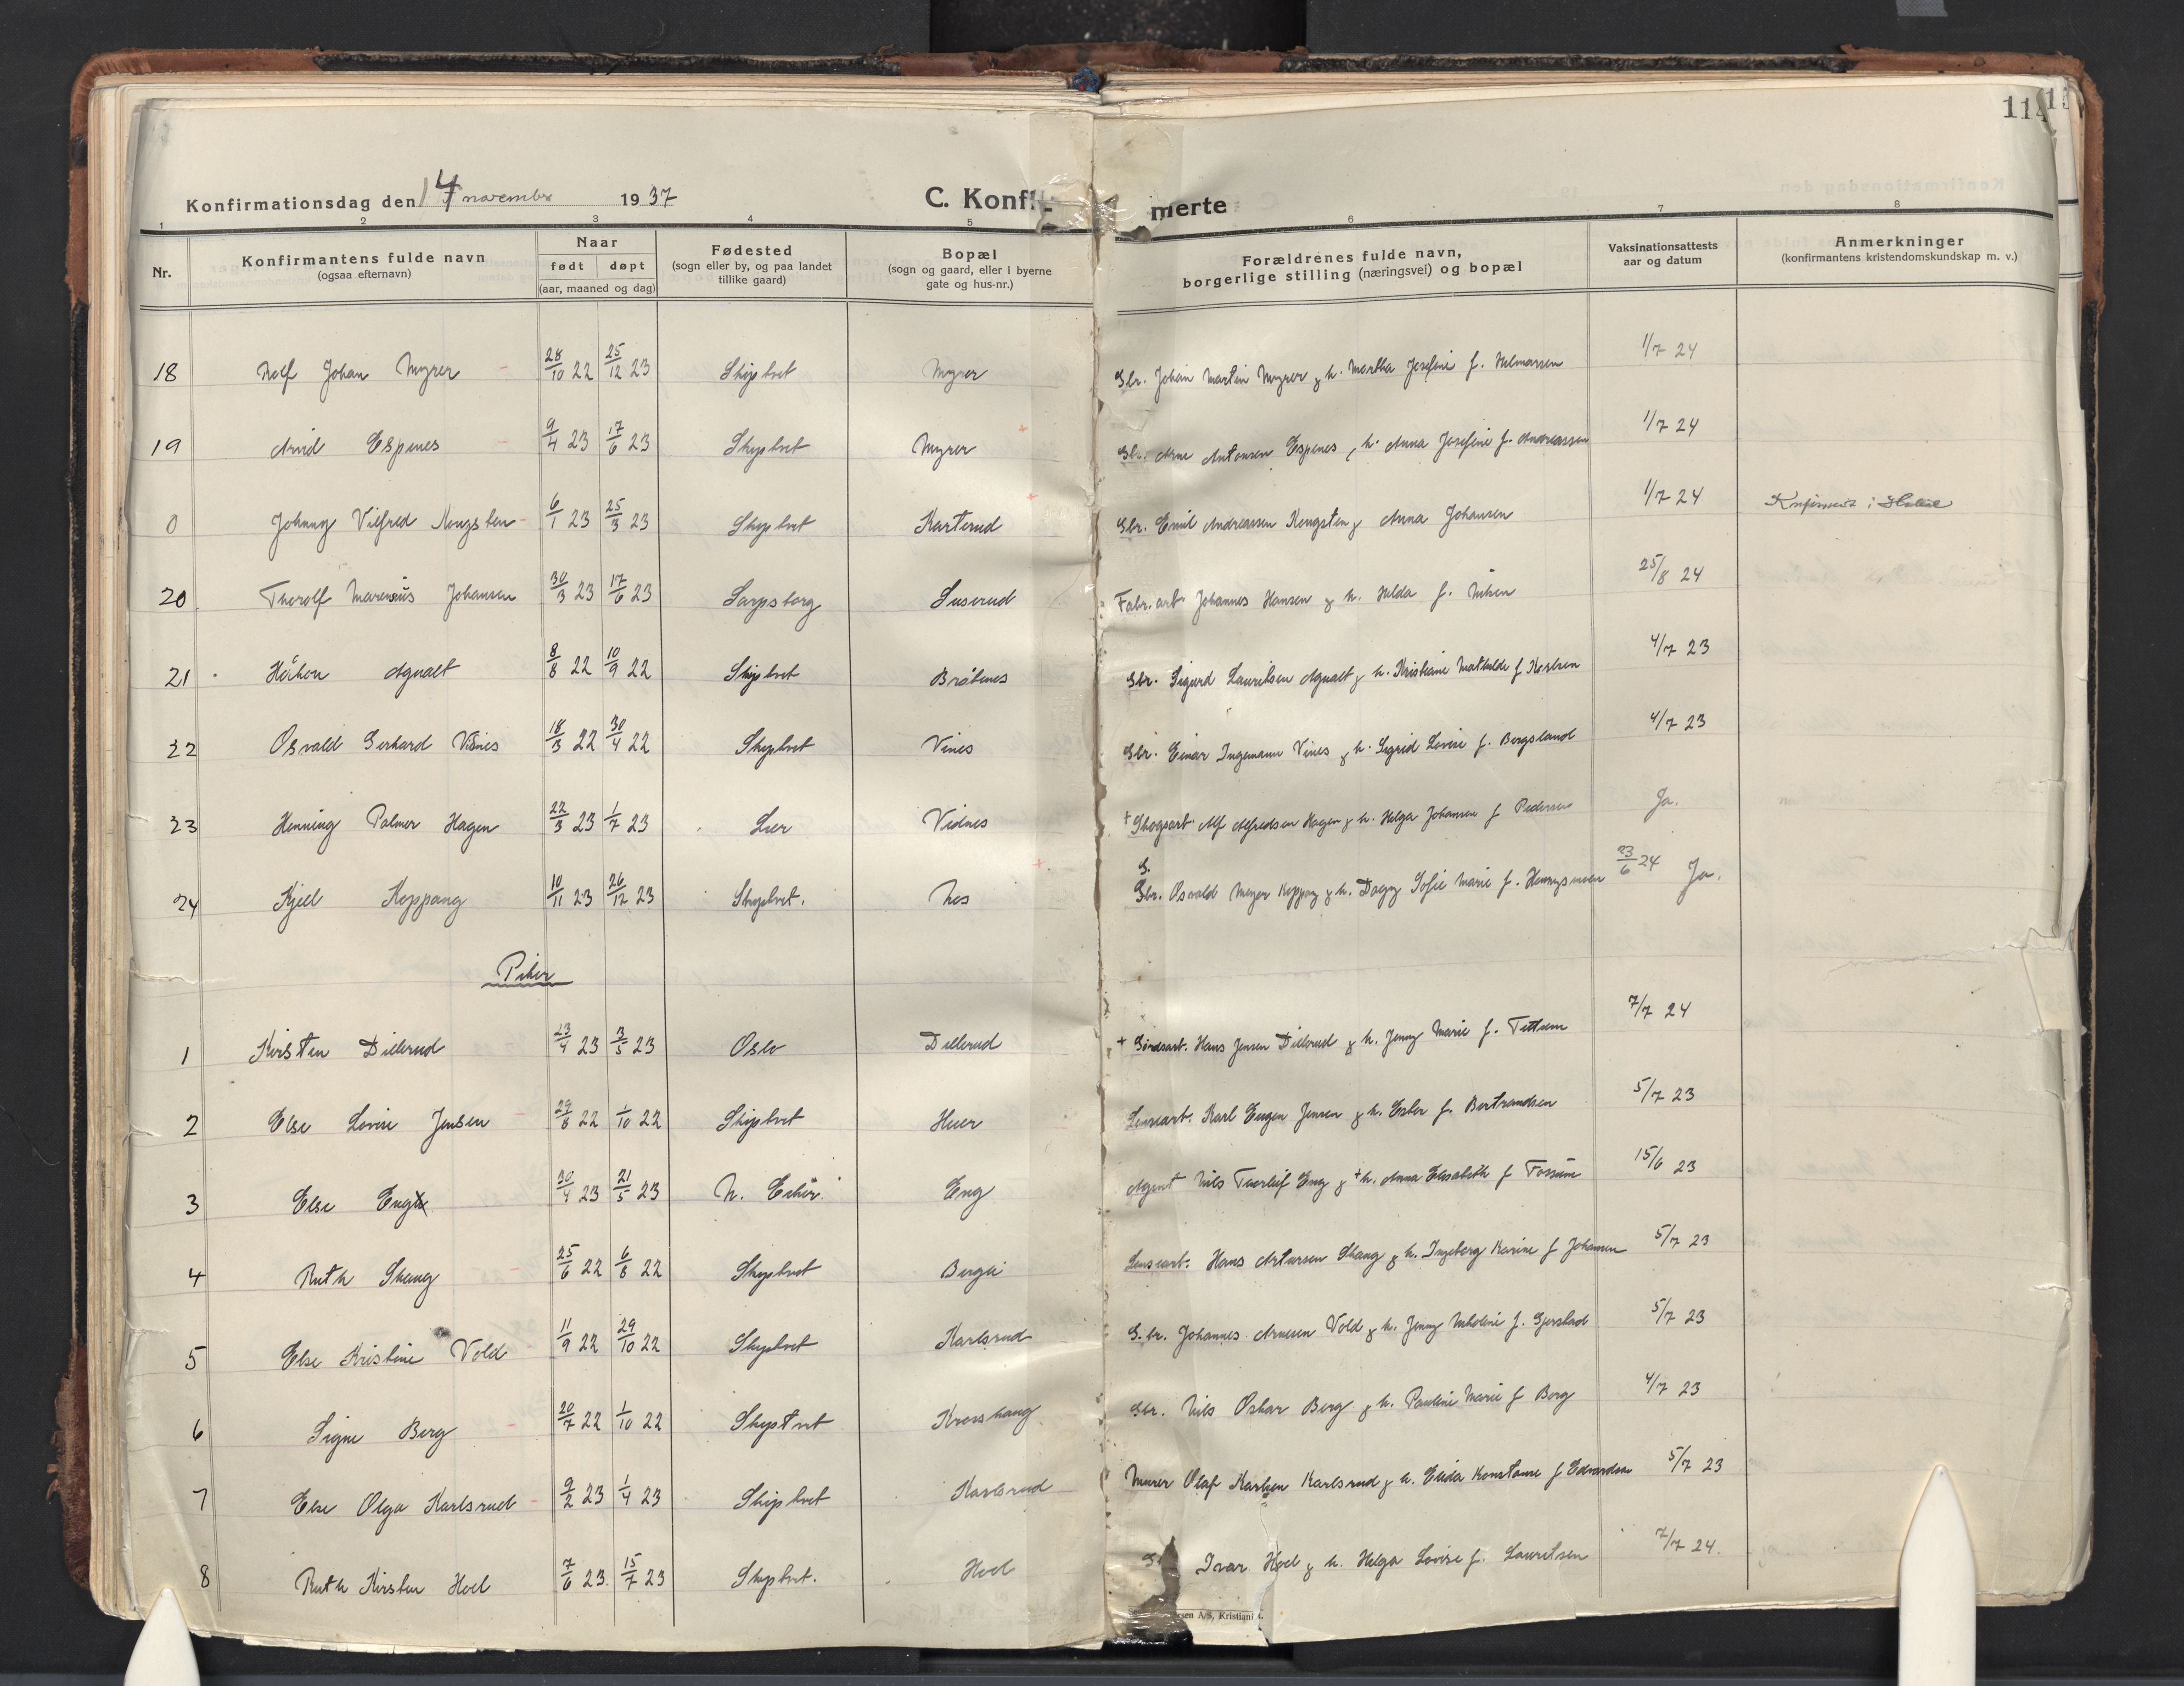 114
Konfirmationsdag den 14 novembr 1937 C. Konfir- merte
1 2 3 4 5 6 7 8
Nr. Konfirmantens fulde navn (ogsaa efternavn) Naar født døpt (aar, maaned og dag) Fødested (sogn eller by, og paa landet tillike gaard) Bopæl (sogn og gaard, eller i byerne gate og hus-nr.) Forældrenes fulde navn, borgerlige stilling (næringsvei) og bopæl Vaksinationsattests aar og datum Anmerkninger (konfirmantens kristendomskundskap m. v.)
18 Rolf Johan Myrer 28/10 22 25/12 23 Skiptvet Myrer Gbr. Johan Martin Myrer & h. Martha Josefine f. Helmersen 1/7 24
19 Arvid Espenes 9/4 23 17/6 23 Skiptvet Myrer Gbr. Arne Antonsen Espenes, h. Anna Josefine f. Andreassen 1/7 24
0 Johnny Vilfred Kongsten 6/1 23 25/3 23 Skiptvet Karterud Gbr. Emil Andreassen Kongsten & Anna Johansen 1/7 24 Konfirmert i
20 Thorolf Marensius Johansen 30/3 23 17/6 23 Sarpsborg Suserud Fabr.arb. Johannes Hansen & h. Hilda f. Nilsen 25/8 24
21 Håkon Agnalt 8/8 22 10/9 22 Skiptvet Bråtenes Gbr. Sigurd Lauritsen Agnalt & h. Kristiane Mathilde f. 4/7 23
22 Osvald Gerhard Vidnes 18/3 22 30/4 22 Skiptvet Vines Gbr. Einar Ingemann Vines & h. Sigrid Lovise f. Bergsland 4/7 23
23 Henning Palmer Hagen 22/3 23 1/7 23 Lier Vidnes + Skogsarb. Alf Alfredsen Hagen & h. Helga Johansen f. Pedersen Ja.
24 Kjell Koppang 10/11 23 26/12 23 Skiptvet. Nes G. Gbr. Osvald Meyer Koppang & h. Dagny Sofie Marie f. Henningsmoen 23/6 24 Ja.
Piker
1 Kirsten Dillerud 23/4 23 3/5 23 Oslo Dillerud + Gårdsarb. Hans Jensen Dillerud & h. Jenny Marie f. 7/7 24
2 Else Lovise Jensen 29/8 22 1/10 22 Skiptvet Huer Lensearb. Karl Eugen Jensen & h. Ester f. Bertrandsen 5/7 23
3 Else Eng 30/4 23 21/5 23 N. Eker Eng Agent Nils Thorleif Eng & + h. Anna Elisabeth f. Fossum 15/6 23
4 Ruth Skaug 25/6 22 6/8 22 Skiptvet Berger Lensearb. Hans Artursen Skaug & h. Ingeborg Karine f. Johansen 5/7 23
5 Else Kristine Vold 11/9 22 29/10 22 Skiptvet Karlsrud G.br. Johannes Arnesen Vold & h. Jenny f. Gjerstad 5/7 23
6 Signe Berg 20/7 22 1/10 22 Skiptvet Krosshaug Gbr. Nils Oskar Berg & h. Pauline Marie f. Berg 4/7 23
7 Else Olga Karlsrud 9/2 23 1/4 23 Skiptvet Karlsrud Murer Olaf Karlsen Karlsrud & h. Elida Konstanse f. Edvardsen 5/7 23
8 Ruth Kirsten Hoel 7/6 23. 15/7 23 Skiptvet. Hoel Ivar Hoel & h. Helga Lovise f. Lauritsen 7/7 24.
rsen A/S, Kristiania